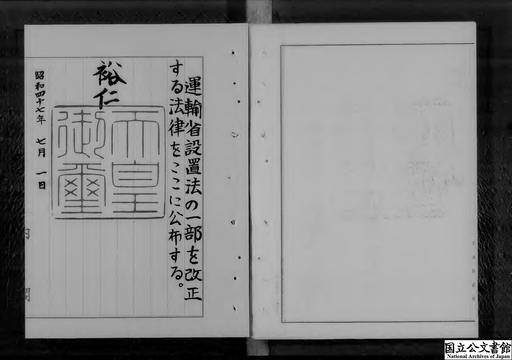 運輸省設置法の一部を改正
する法律をここに公布する。
裕仁
天皇
御璽
昭和四十七年 七月 一日
国立公文書館
National Archives of Japan